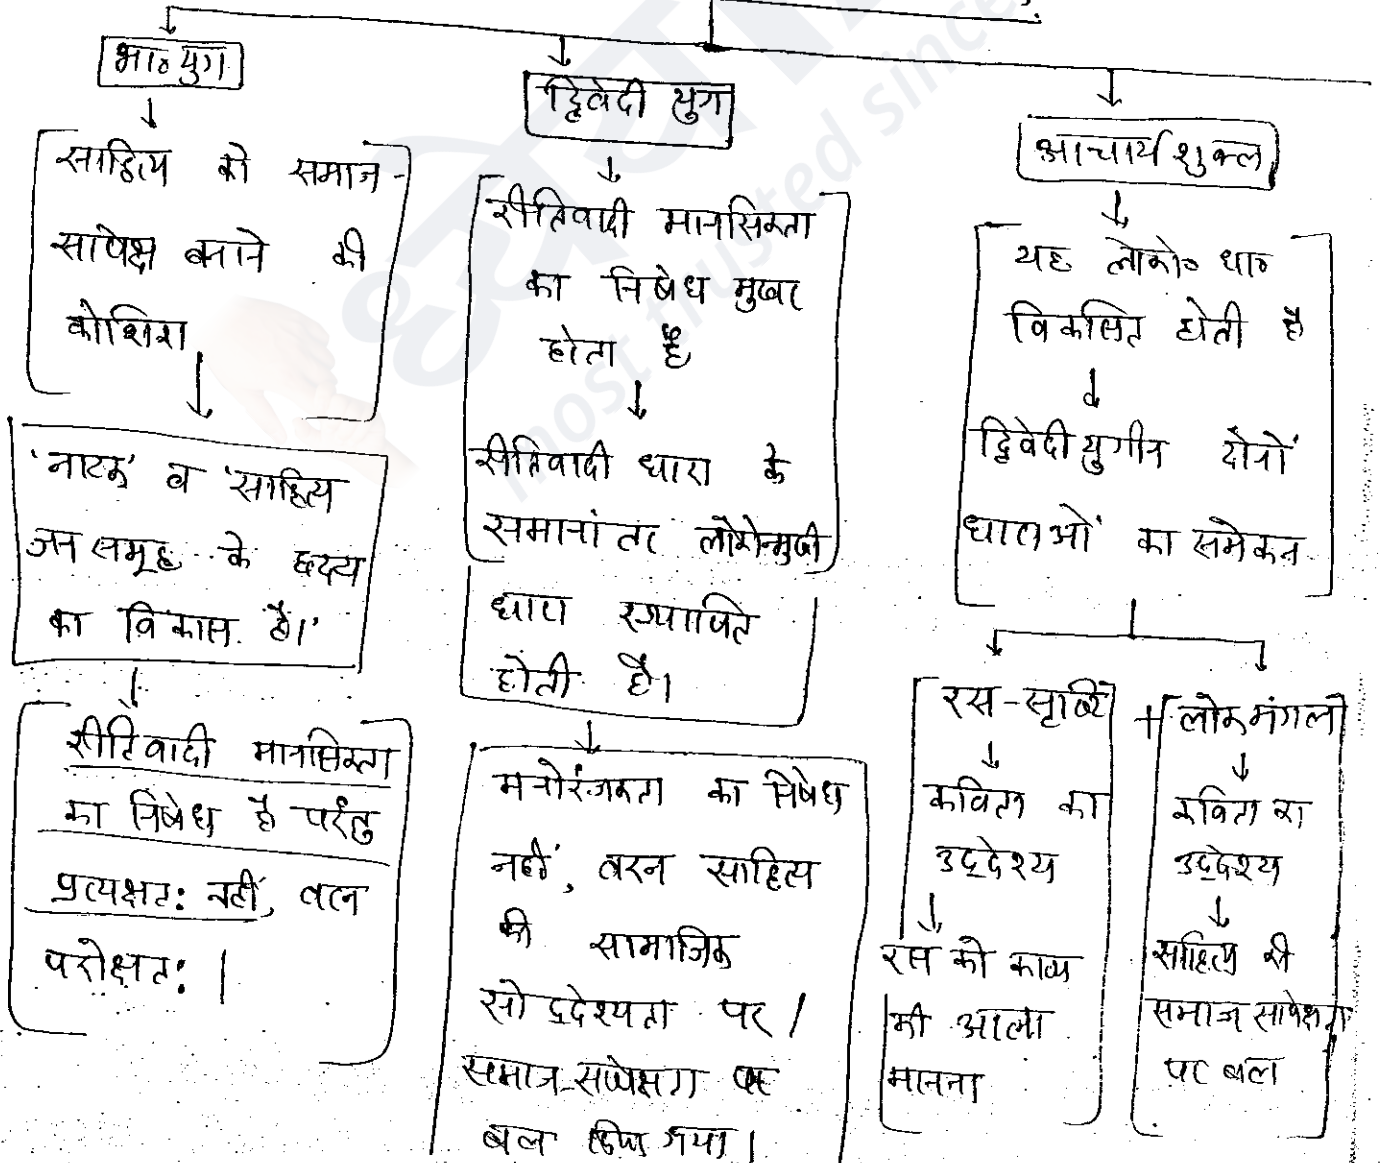 भा० युग
साहित्य को समाज-
सापेक्ष बनाने की
कोशिश
'नाटक' व 'साहित्य
जन समूह के हृदय
का विकास है।'
रीतिवादी मानसिकता
का निषेध है परंतु
प्रत्यक्षतः नहीं, वरन
परोक्षतः।
द्विवेदी युग
रीतिवादी मानसिकता
का निषेध मुखर
होता है
रीतिवादी धारा के
समानांतर लोकोन्मुखी
धारा स्थापित
होती है।
मनोरंजकता का निषेध
नहीं, वरन साहित्य
की सामाजिक
सोद्देश्यता पर /
समाज-सापेक्षता पर
बल दिया गया।
आचार्य शुक्ल
यह लोको० धारा
विकसित होती है
द्विवेदीयुगीन दोनों
धाराओं का समेकन
रस-सृष्टि
कविता का
उद्देश्य
रस को काव्य
की आत्मा
मानना
+ लोकमंगल
कविता का
उद्देश्य
साहित्य की
समाज सापेक्षता
पर बल
most trusted since